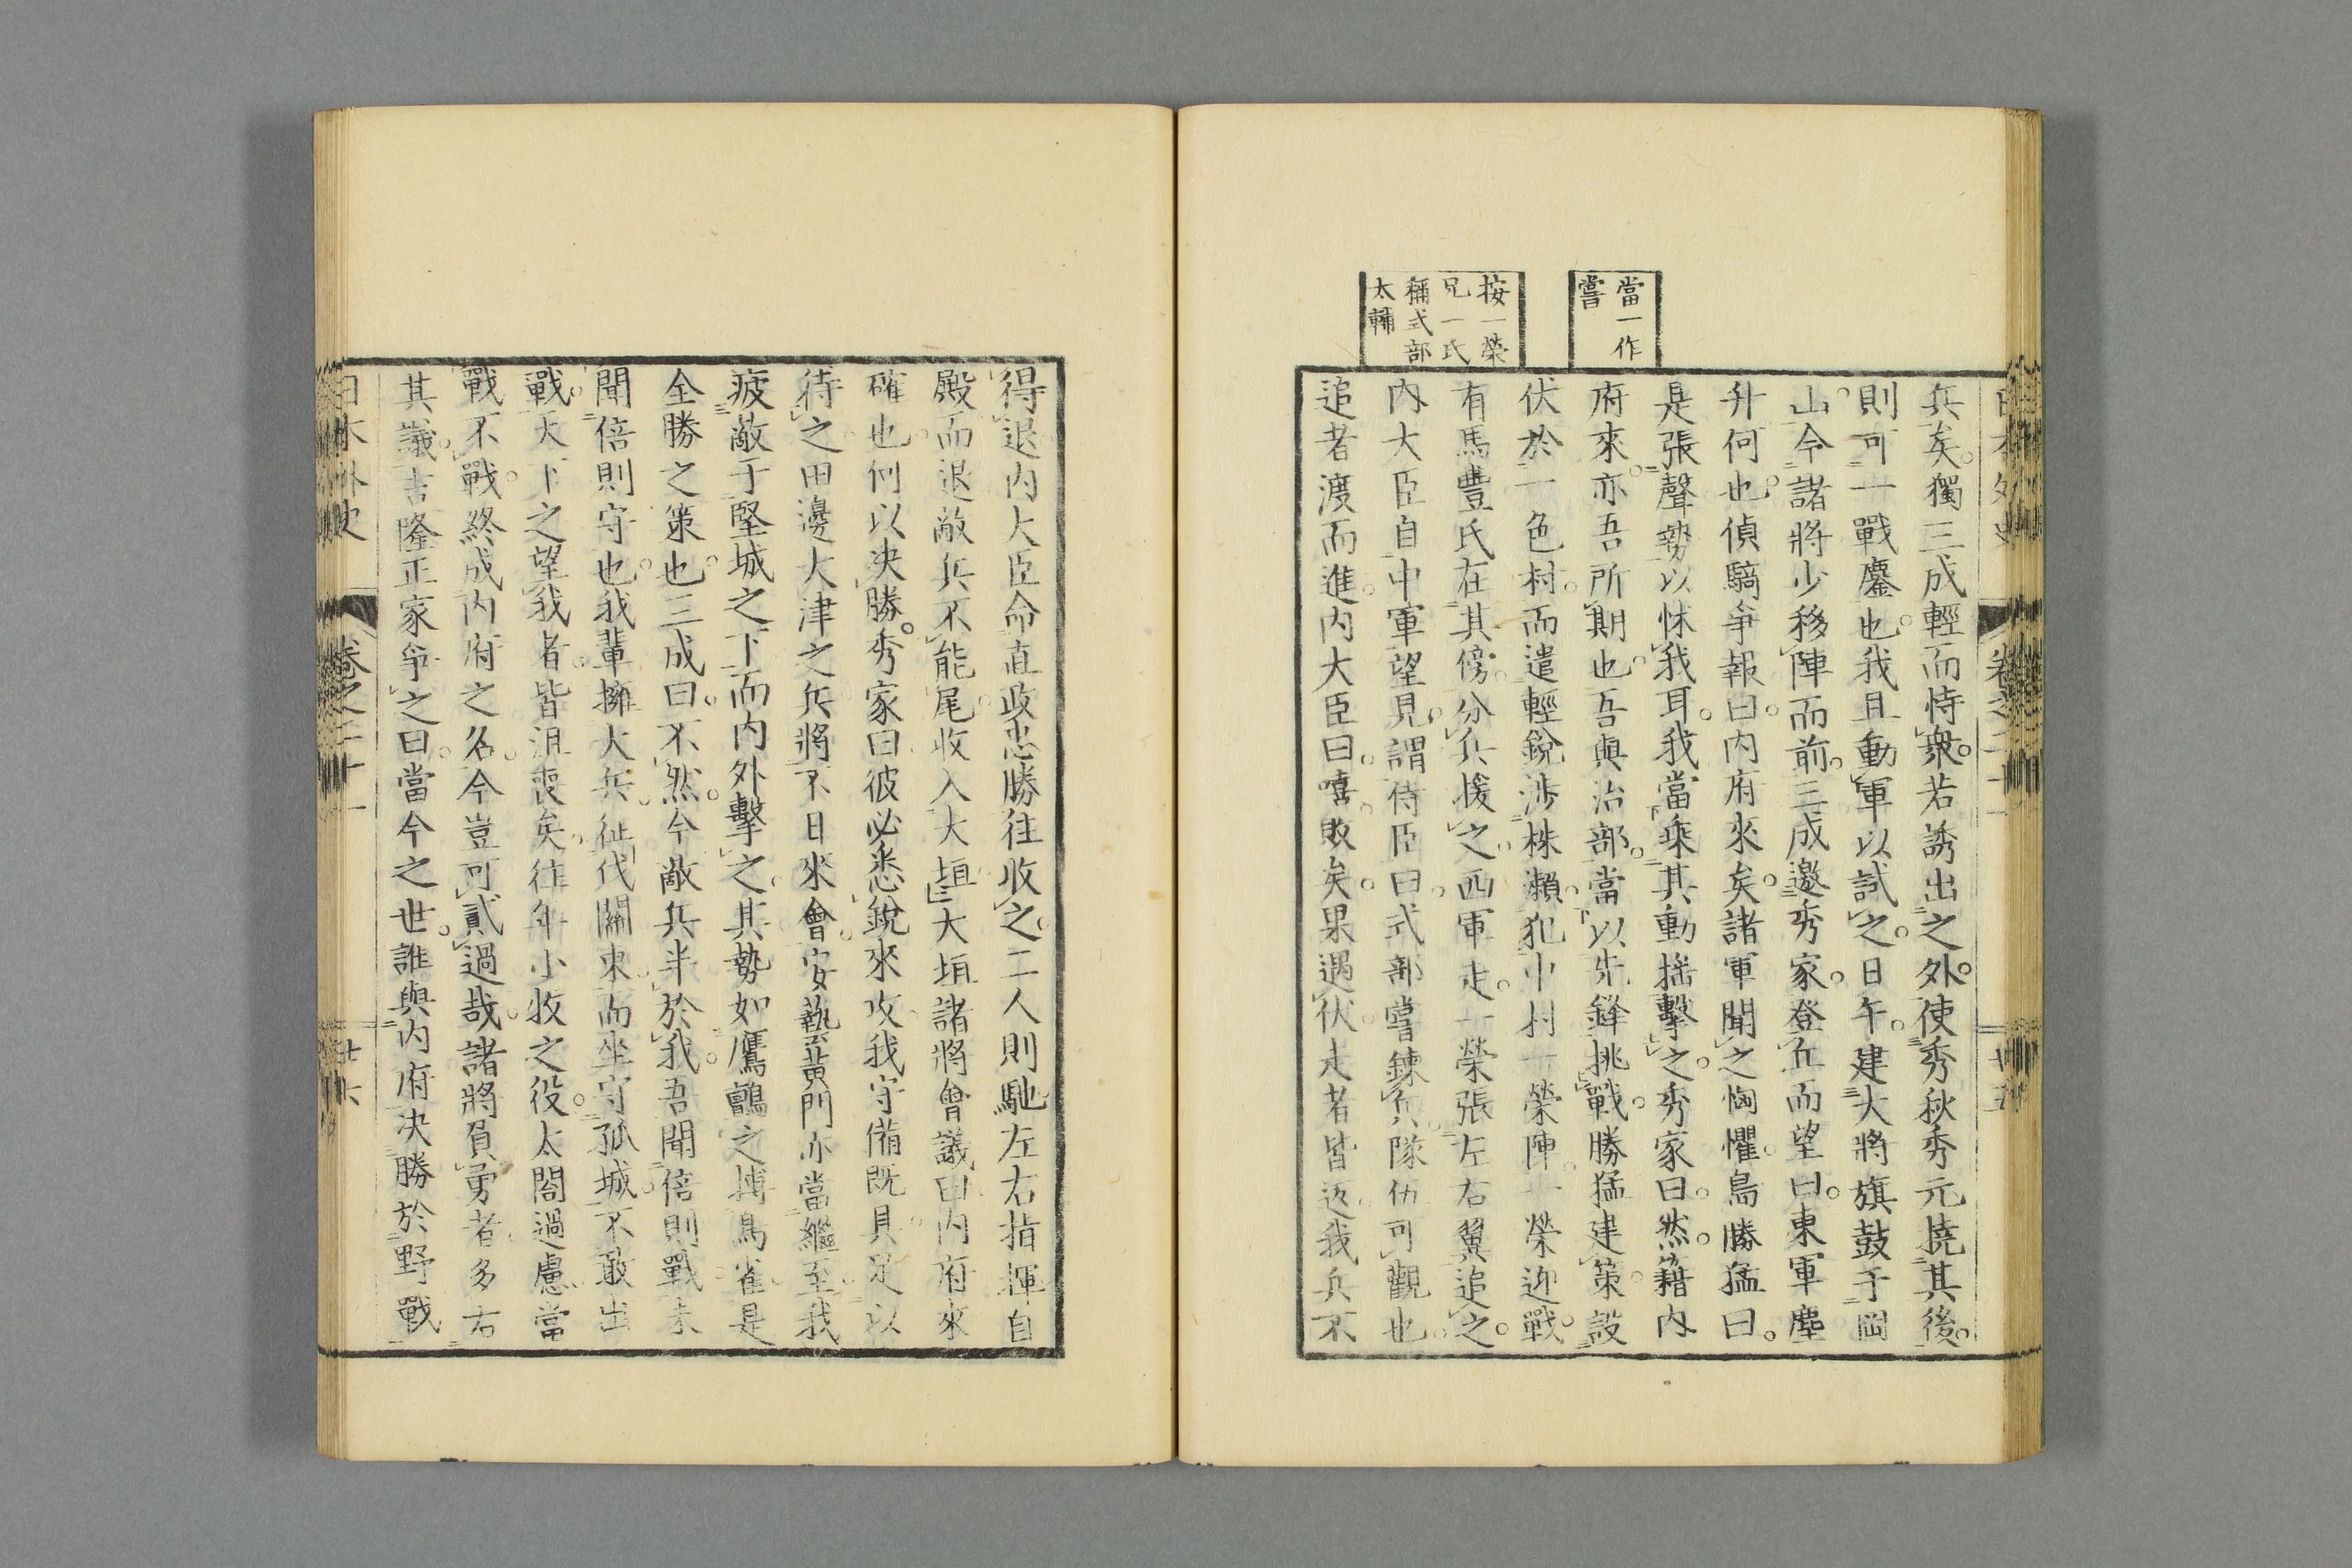 日本外史 卷之二十一 廿五
兵矣獨三成輕而恃衆若誘出之外使秀秋秀元撓其後
則可一戰鏖也我且動軍以試之日午建大將旗鼓于岡
山令諸將少移陣而前三成邀秀家登丘而望曰東軍塵
升何也偵騎爭報曰內府來矣諸軍聞之恟懼島勝猛曰
是張聲勢以怵我耳我當乘其動搖擊之秀家曰然藉內
府來亦吾所期也吾與治部當以先鋒挑戰勝猛建策設
伏於一色村而遣輕銳涉株瀨犯中村一榮陣一榮迎戰
有馬豐氏在其傍分兵援之西軍走一榮張左右翼追之
內大臣自中軍望見謂侍臣曰式部嘗鍊兵隊伍可觀也
追者渡而進內大臣曰嘻敗矣果遇伏走者皆返我兵不
當一作
嘗
按一榮
兄一氏
稱式部
太輔
得退內大臣命直政忠勝往收之二人則馳左右指揮自
殿而退敵兵不能尾收入大垣大垣諸將會議曰內府來
確也何以決勝秀家曰彼必悉銳來攻我守備既具足以
待之田邊大津之兵將不日來會安藝黃門亦當繼至我
疲敵于堅城之下而內外擊之其勢如鷹鸇之搏鳥雀是
全勝之策也三成曰不然今敵兵半於我吾聞倍則戰未
聞倍則守也我輩擁大兵征伐關東而坐守孤城不敢出
戰天下之望我者皆沮喪矣往年小牧之役太閤過慮當
戰不戰終成內府之名今豈可貳過哉諸將負勇者多右
其議吉隆正家爭之曰當今之世誰與內府決勝於野戰
日本外史 卷之二十一 廿六